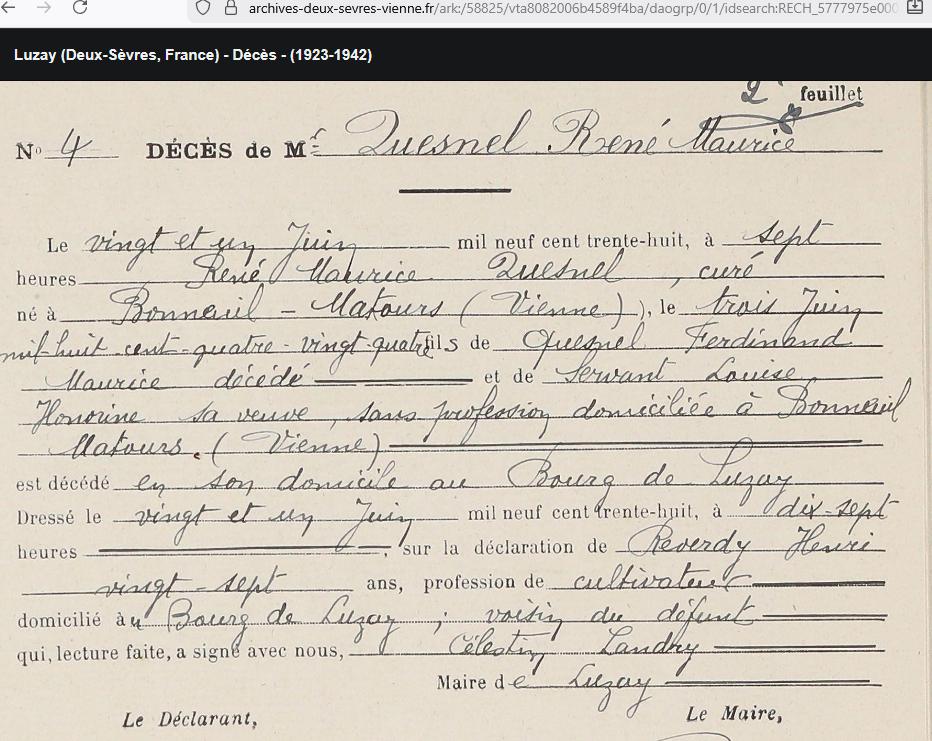 archives-deux-sevres-vienne.fr/ark:/58825/vta8082006b4589f4ba/daogrp/0/1/idsearch:RECH_5777975e000
Luzay (Deux-Sèvres, France) - Décès - (1923-1942)
2e feuillet
No 4 DÉCÈS de Mr Quesnel René Maurice
Le vingt et un Juin mil neuf cent trente-huit, à sept
heures René Maurice Quesnel, curé
né à Bonneuil-Matours (Vienne)), le trois Juin
mil-huit-cent-quatre-vingt-quatre fils de Quesnel Ferdinand
Maurice décédé et de Servant Louise
Honorine sa veuve, sans profession domiciliée à Bonneuil
Matours. (Vienne)
est décédé en son domicile au Bourg de Luzay
Dressé le vingt et un Juin mil neuf cent trente-huit, à dix-sept
heures, sur la déclaration de Reverdy Henri
vingt-sept ans, profession de cultivateur
domicilié au Bourg de Luzay ; voisin du défunt
qui, lecture faite, a signé avec nous, Célestin Landry
Maire de Luzay
Le Déclarant, Le Maire,